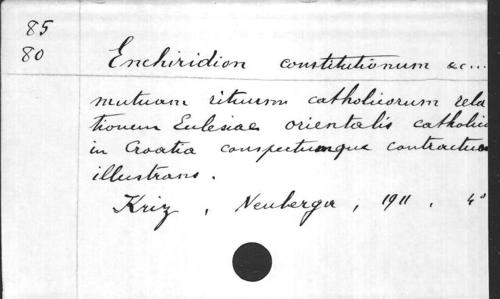 85
80
Enchiridion constitutionum &c...
mutuam rituum catholicorum rela
tionem Eclesiae orientalis catholic
in Croatia conspectumque contractuum
illustrans.
Kriz, Neuberger, 1911, 4°